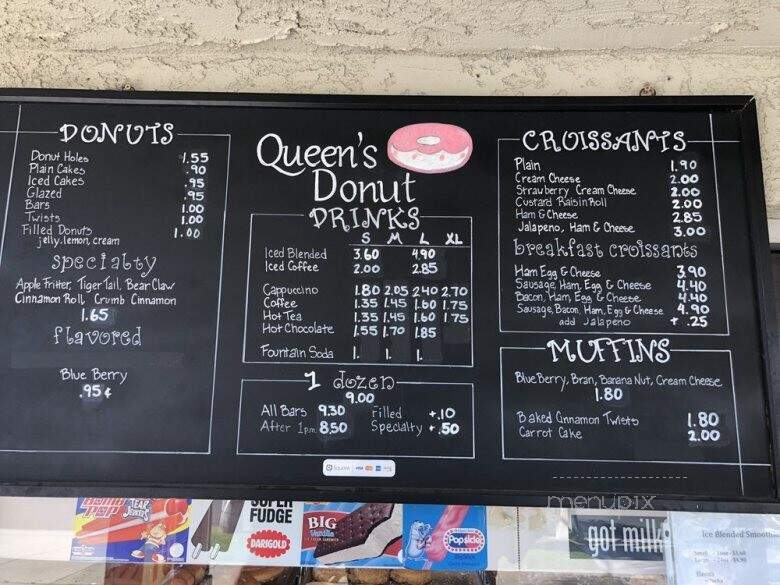 DONUTS
Donut Holes 1.55
Plain Cakes .90
Iced Cakes .95
Glazed .95
Bars 1.00
Twists 1.00
Filled Donuts 1.00
jelly, lemon, cream
specialty
Apple Fritter, Tiger Tail, Bear Claw
Cinnamon Roll, Crumb Cinnamon
1.65
flavored
Blue Berry
.95¢
Queen's
Donut
DRINKS
S M L XL
Iced Blended 3.60 4.90
Iced Coffee 2.00 2.85
Cappuccino 1.80 2.05 2.40 2.70
Coffee 1.35 1.45 1.60 1.75
Hot Tea 1.35 1.45 1.60 1.75
Hot Chocolate 1.55 1.70 1.85
Fountain Soda 1. 1. 1.
1 dozen
9.00
All Bars 9.30 Filled +.10
After 1pm 8.50 Specialty +.50
Square VISA
CROISSANTS
Plain 1.90
Cream Cheese 2.00
Strawberry Cream Cheese 2.00
Custard Raisin Roll 2.00
Ham & Cheese 2.85
Jalapeno, Ham & Cheese 3.00
breakfast croissants
Ham Egg & Cheese 3.90
Sausage, Ham, Egg & Cheese 4.40
Bacon, Ham, Egg & Cheese 4.40
Sausage, Bacon, Ham, Egg & Cheese 4.90
add Jalapeno + .25
MUFFINS
Blue Berry, Bran, Banana Nut, Cream Cheese
1.80
Baked Cinnamon Twists 1.80
Carrot Cake 2.00
menupix
BOMB
POP
TEAR
JERKERS
SUPER
FUDGE
DARIGOLD
BIG
Vanilla
Popsicle
got milk
Ice Blended Smooth